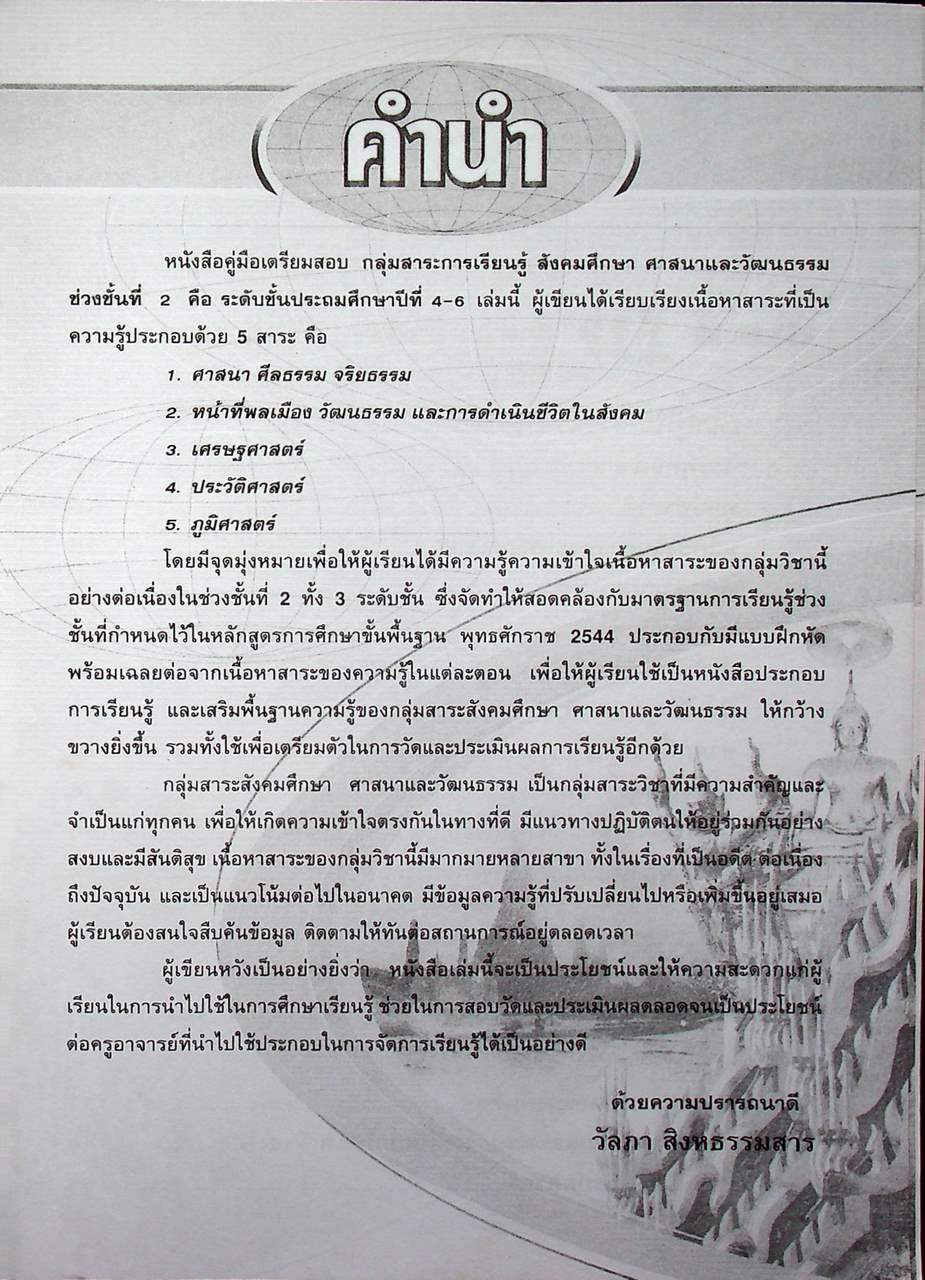 คำนำ
หนังสือคู่มือเตรียมสอบ กลุ่มสาระการเรียนรู้ สังคมศึกษา ศาสนาและวัฒนธรรม
ช่วงชั้นที่ 2 คือ ระดับชั้นประถมศึกษาปีที่ 4-6 เล่มนี้ ผู้เขียนได้เรียบเรียงเนื้อหาสาระที่เป็น
ความรู้ประกอบด้วย 5 สาระ คือ
1. ศาสนา ศีลธรรม จริยธรรม
2. หน้าที่พลเมือง วัฒนธรรม และการดำเนินชีวิตในสังคม
3. เศรษฐศาสตร์
4. ประวัติศาสตร์
5. ภูมิศาสตร์
โดยมีจุดมุ่งหมายเพื่อให้ผู้เรียนได้มีความรู้ความเข้าใจเนื้อหาสาระของกลุ่มวิชานี้
อย่างต่อเนื่องในช่วงชั้นที่ 2 ทั้ง 3 ระดับชั้น ซึ่งจัดทำให้สอดคล้องกับมาตรฐานการเรียนรู้ช่วง
ชั้นที่กำหนดไว้ในหลักสูตรการศึกษาขั้นพื้นฐาน พุทธศักราช 2544 ประกอบกับมีแบบฝึกหัด
พร้อมเฉลยต่อจากเนื้อหาสาระของความรู้ในแต่ละตอน เพื่อให้ผู้เรียนใช้เป็นหนังสือประกอบ
การเรียนรู้ และเสริมพื้นฐานความรู้ของกลุ่มสาระสังคมศึกษา ศาสนาและวัฒนธรรม ให้กว้าง
ขวางยิ่งขึ้น รวมทั้งใช้เพื่อเตรียมตัวในการวัดและประเมินผลการเรียนรู้อีกด้วย
กลุ่มสาระสังคมศึกษา ศาสนาและวัฒนธรรม เป็นกลุ่มสาระวิชาที่มีความสำคัญและ
จำเป็นแก่ทุกคน เพื่อให้เกิดความเข้าใจตรงกันในทางที่ดี มีแนวทางปฏิบัติตนให้อยู่ร่วมกันอย่าง
สงบและมีสันติสุข เนื้อหาสาระของกลุ่มวิชานี้มีมากมายหลายสาขา ทั้งในเรื่องที่เป็นอดีต ต่อเนื่อง
ถึงปัจจุบัน และเป็นแนวโน้มต่อไปในอนาคต มีข้อมูลความรู้ที่ปรับเปลี่ยนไปหรือเพิ่มขึ้นอยู่เสมอ
ผู้เรียนต้องสนใจสืบค้นข้อมูล ติดตามให้ทันต่อสถานการณ์อยู่ตลอดเวลา
ผู้เขียนหวังเป็นอย่างยิ่งว่า หนังสือเล่มนี้จะเป็นประโยชน์และให้ความสะดวกแก่ผู้
เรียนในการนำไปใช้ในการศึกษาเรียนรู้ ช่วยในการสอบวัดและประเมินผลตลอดจนเป็นประโยชน์
ต่อครูอาจารย์ที่นำไปใช้ประกอบในการจัดการเรียนรู้ได้เป็นอย่างดี
ด้วยความปรารถนาดี
วัลภา สิงหธรรมสาร